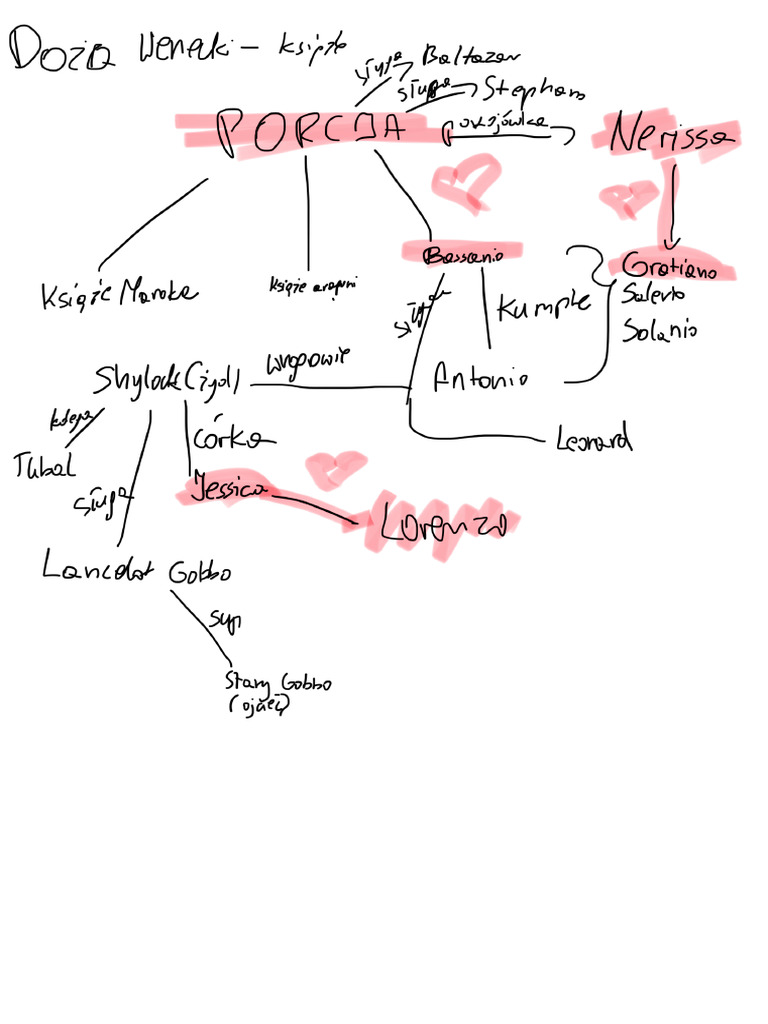 Doża Wenecki – książe
sługa Baltazar
sługa Stephano
PORCJA pokojówka Nerissa
Bassanio
Gratiano
Książe Maroka
książe aragoni
sługa
Kumple
Salerio
Solanio
Shylock (żyd)
wrogowie
Antonio
kolega
córka
Leonard
Tubal
sługa
Jessica
Lorenzo
Lancelot Gobbo
syn
Stary Gobbo
(ojciec)